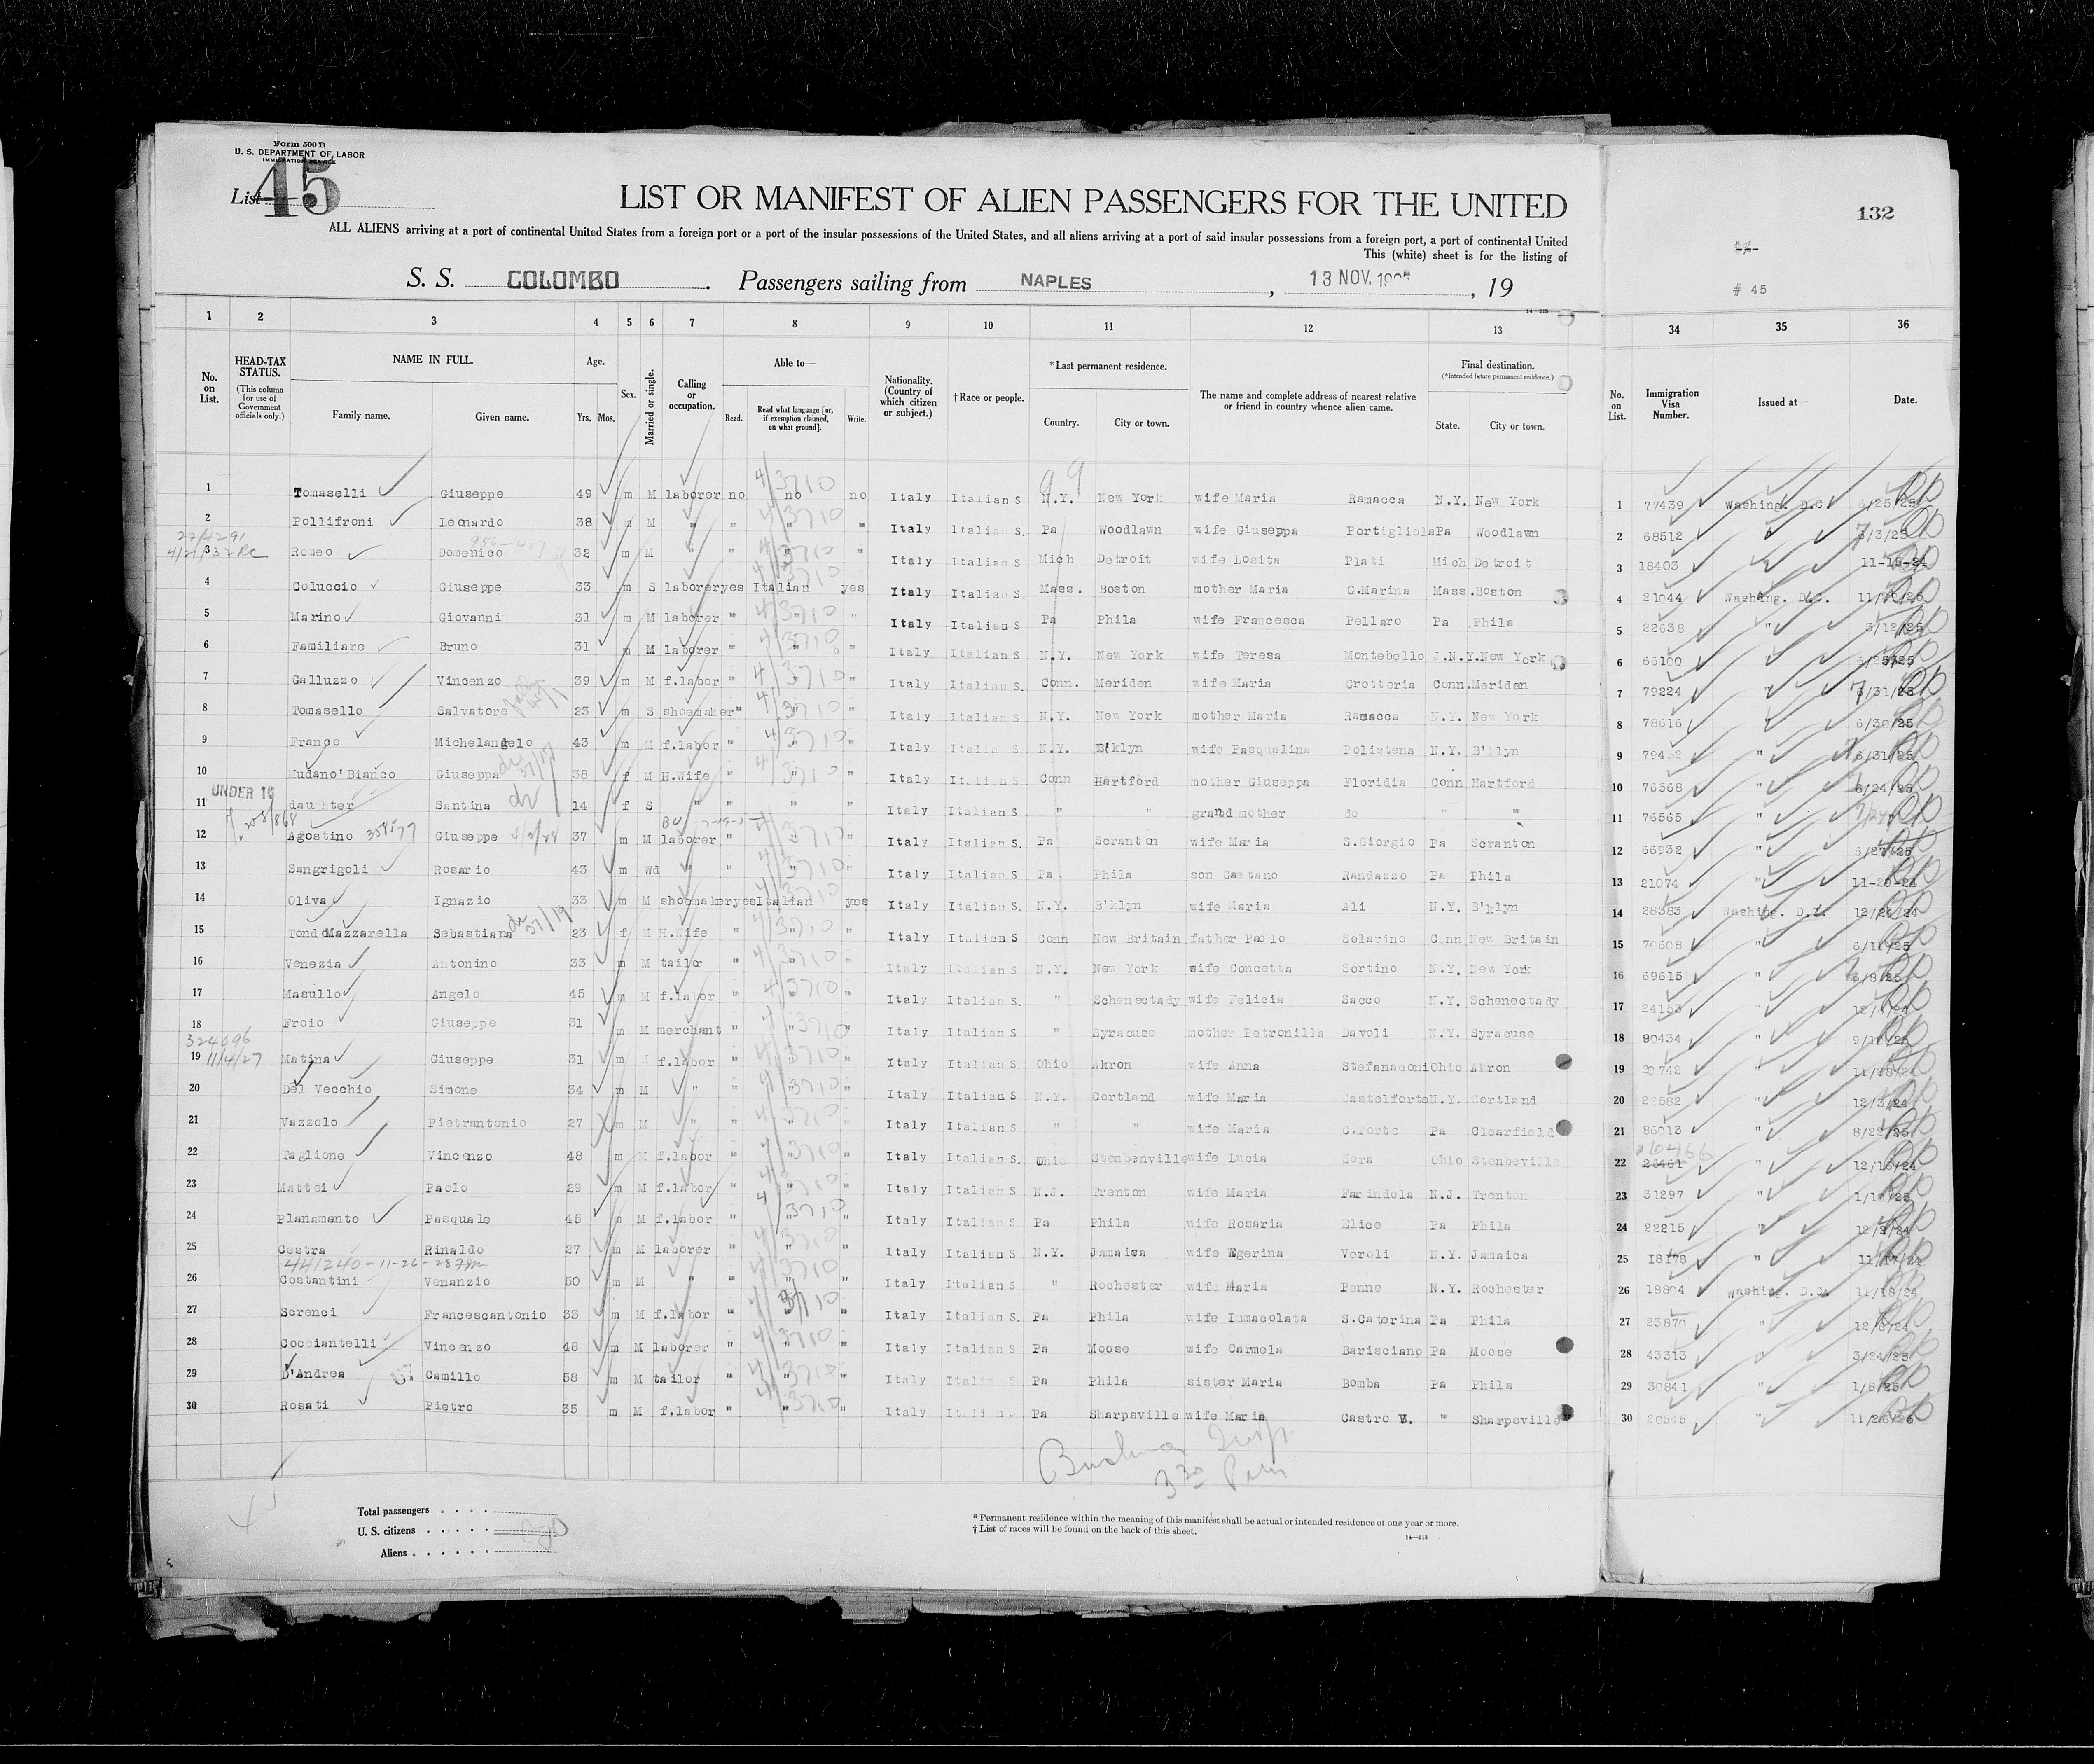 Form 500 B
U. S. DEPARTMENT OF LABOR
IMMIGRATION SERVICE
List 45
LIST OR MANIFEST OF ALIEN PASSENGERS FOR THE UNITED
ALL ALIENS arriving at a port of continental United States from a foreign port or a port of the insular possessions of the United States, and all aliens arriving at a port of said insular possessions from a foreign port, a port of continental United
This (white) sheet is for the listing of
S. S. COLOMBO . Passengers sailing from NAPLES , 13 NOV. , 19
132
# 45
14—213
1 2 3 4 5 6 7 8 9 10 11 12 13 34 35 36
No. on List.
HEAD-TAX STATUS.
(This column for use of Government officials only.)
NAME IN FULL.
Family name. Given name.
Age.
Yrs. Mos.
Sex.
Married or single.
Calling or occupation.
Able to—
Read. Read what language [or, if exemption claimed, on what ground]. Write.
Nationality. (Country of which citizen or subject.)
†Race or people.
*Last permanent residence.
Country. City or town.
The name and complete address of nearest relative or friend in country whence alien came.
Final destination.
(*Intended future permanent residence.)
State. City or town.
No. on List.
Immigration Visa Number.
Issued at—
Date.
99
1 Tomaselli Giuseppe 49 m M laborer no no no Italy Italian S N.Y. New York wife Maria Ramacca N.Y. New York 1 77439 Washing. D.C 6/25/25
2 Pollifroni Leonardo 38 m M " " " " Italy Italian S. Pa Woodlawn wife Giuseppa Portigliola Pa Woodlawn 2 68512
3 Romeo Domenico 32 m M " " " " Italy Italian S Mich Detroit wife Losita Plati Mich Detroit 3 18403 11-15-24
4 Coluccio Giuseppe 33 m S laborer yes Italian yes Italy Italian S. Mass. Boston mother Maria G.Marina Mass. Boston 4 21044 Washing. D.C.
5 Marino Giovanni 31 m M laborer " " " Italy Italian S Pa Phila wife Francesca Pellaro Pa Phila 5 22638 " 3/12/25
6 Familiare Bruno 31 m M laborer " " " Italy Italian S N.Y. New York wife Teresa Montebello J. N.Y. New York 6 66100 "
7 Galluzzo Vincenzo 39 m M f.labor " " " Italy Italian S. Conn. Meriden wife Maria Grotteria Conn. Meriden 7 79224 "
8 Tomasello Salvatore 23 m S shoemaker " " " Italy Italian S N.Y. New York mother Maria Ramacca N.Y. New York 8 78616 " 6/30/25
9 Franco Michelangelo 43 m M f.labor " " " Italy Italia S N.Y. B'klyn wife Pasqualina Polistena N.Y. B'klyn 9 79452 "
10 Mudano' Bianco Giuseppa 38 f M H.Wife " " " Italy Italian S Conn Hartford mother Giuseppa Floridia Conn Hartford 10 76568 " 6/24/25
UNDER 16
11 daughter Santina 14 f S " " " " Italy Italian S " " grand mother do " " 11 76565 "
12 Agostino Giuseppe 37 m M laborer " " " Italy Italian S. Pa Scranton wife Maria S.Giorgio Pa Scranton 12 66932 " 6/27/25
13 Sangrigoli Rosario 43 m Wd " " " " Italy Italian S Pa Phila son Gaetano Randazzo Pa Phila 13 21074 " 11-20-24
14 Oliva Ignazio 33 m M shoemaker yes Italian yes Italy Italian S. N.Y. B'klyn wife Maria Ali N.Y. B'klyn 14 28383 Washing. D.C. 12/24/24
15 Tondo Mazzarella Sebastiana 23 f M H.Wife " " " Italy Italian S Conn New Britain father Paolo Solarino Conn New Britain 15 70608 "
16 Venezia Antonino 33 m M tailor " " " Italy Italian S N.Y. New York wife Concetta Sortino N.Y. New York 16 69615 "
17 Masullo Angelo 45 m M f.labor " " " Italy Italian S. " Schenectady wife Felicia Sacco N.Y. Schenectady 17 24153 "
18 Froio Giuseppe 31 m M merchant " " " Italy Italian S " Syracuse mother Petronilla Davoli N.Y. Syracuse 18 90434 "
324096
19 11/4/27 Matina Giuseppe 31 m f.labor " " " Italy Italian S Ohio Akron wife Anna Stefanaconi Ohio Akron 19 "
20 Del Vecchio Simone 34 m M " " " " Italy Italian S N.Y. Cortland wife Maria Castelforte N.Y. Cortland 20 22582 " 12/3/24
21 Vazzolo Pietrantonio 27 m M " " " " Italy Italian S " " wife Maria C.Forte Pa Clearfield 21 86013 "
22 Taglione Vincenzo 48 m M f.labor " " " Italy Italian S. Ohio Stenbenville wife Lucia Sora Ohio Stenbeville 22 26461 " 12/16/24
23 Mattei Paolo 29 m M f.labor " " " Italy Italian S N.J. Trenton wife Maria Farindola N.J. Trenton 23 31297 "
24 Planamento Pasquale 45 m M f.labor " " " Italy Italian S. Pa Phila wife Rosaria Elice Pa Phila 24 22215 "
25 Cestra Rinaldo 27 m M laborer " " " Italy Italian S N.Y. Jamaica wife Egerina Veroli N.Y. Jamaica 25 18178 " 11/17/24
26 Costantini Venanzio 50 m M " " " " Italy Italian S " Rochester wife Maria Penne N.Y. Rochester 26 18804 Washing. D.C. 11/18/24
27 Screnci Francescantonio 33 m M f.labor " " " Italy Italian S. Pa Phila wife Immacolata S.Caterina Pa Phila 27 23870 "
28 Cocciantelli Vincenzo 48 m M laborer " " " Italy Italian S Pa Moose wife Carmela Barisciano Pa Moose 28 43313 " 3/24/25
29 D'Andrea Camillo 58 m M tailor " " " Italy Italia Pa Phila sister Maria Bomba Pa Phila 29 30841 " 1/8/25
30 Rosati Pietro 35 m M f.labor " " " Italy Pa Sharpsville wife Maria Castro V. " Sharpsville 30 "
3 30 P.m.
Total passengers . . . .
U. S. citizens . . . . .
Aliens . . . . . .
* Permanent residence within the meaning of this manifest shall be actual or intended residence of one year or more.
† List of races will be found on the back of this sheet.
14—213